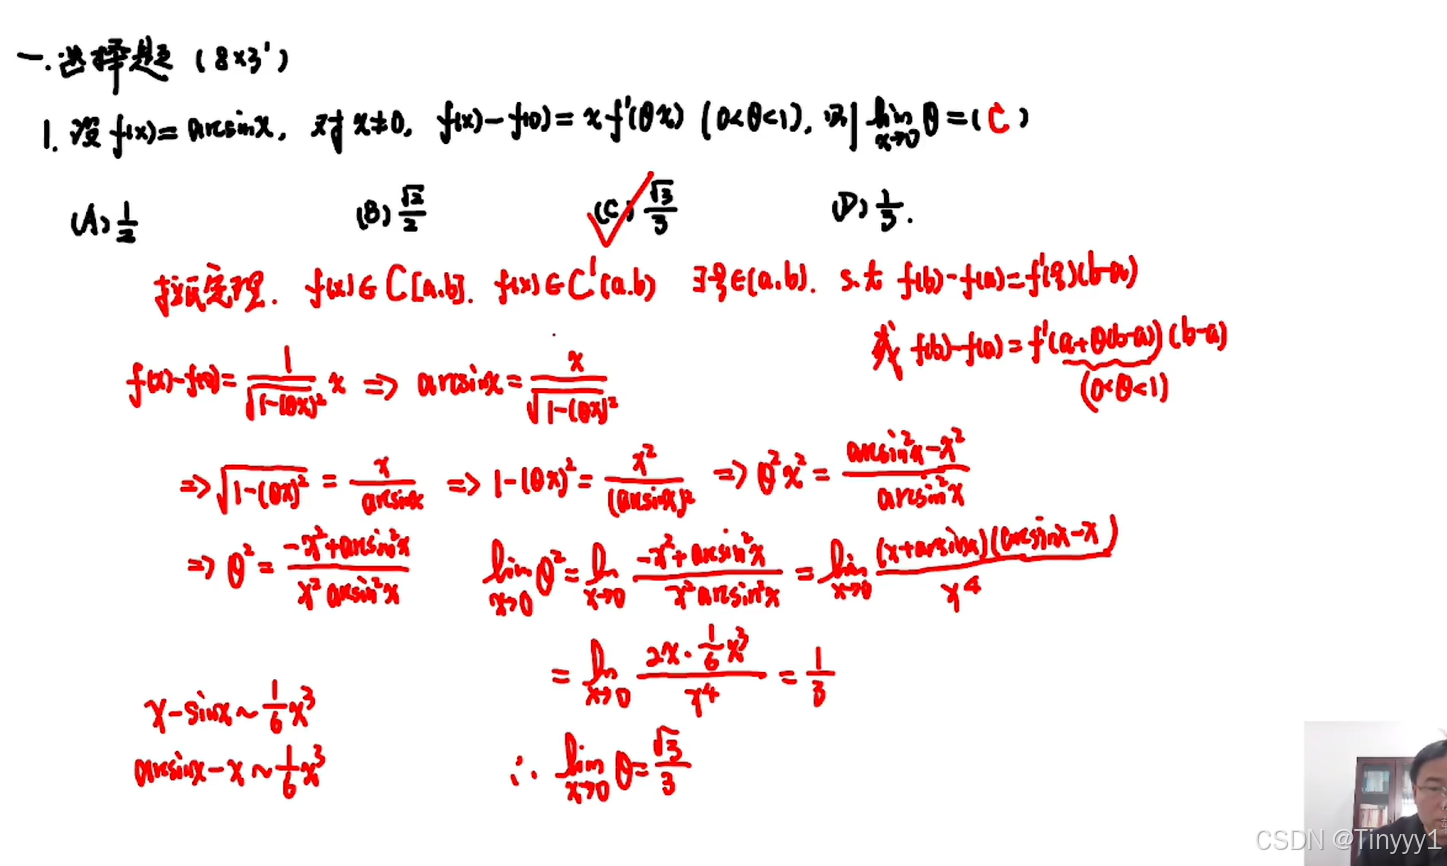 一.选择题 (8×3')
1. 设 f(x)=arcsinx, 对 x≠0, f(x)-f(0)=xf'(θx) (0<θ<1), 则 lim_{x→0} θ=( C )
(A) 1/2 (B) √2/2 (C) √3/3 (D) 1/3.
拉氏定理. f(x)∈C[a,b]. f(x)∈C'(a,b) ∃ξ∈(a,b). s.t f(b)-f(a)=f'(ξ)(b-a)
或 f(b)-f(a)=f'(a+θ(b-a))(b-a)
(0<θ<1)
f(x)-f(0)= 1/√(1-(θx)²) x ⇒ arcsinx = x/√(1-(θx)²)
⇒ √(1-(θx)²) = x/arcsinx ⇒ 1-(θx)² = x²/(arcsinx)² ⇒ θ²x² = (arcsin²x-x²)/arcsin²x
⇒ θ² = (-x²+arcsin²x)/(x² arcsin²x) lim_{x→0} θ² = lim_{x→0} (-x²+arcsin²x)/(x² arcsin²x) = lim_{x→0} (x+arcsinx)(arcsinx-x)/x⁴
= lim_{x→0} (2x·1/6 x³)/x⁴ = 1/3
x-sinx ~ 1/6 x³
arcsinx-x ~ 1/6 x³
∴ lim_{x→0} θ = √3/3
CSDN @Tinyyy1